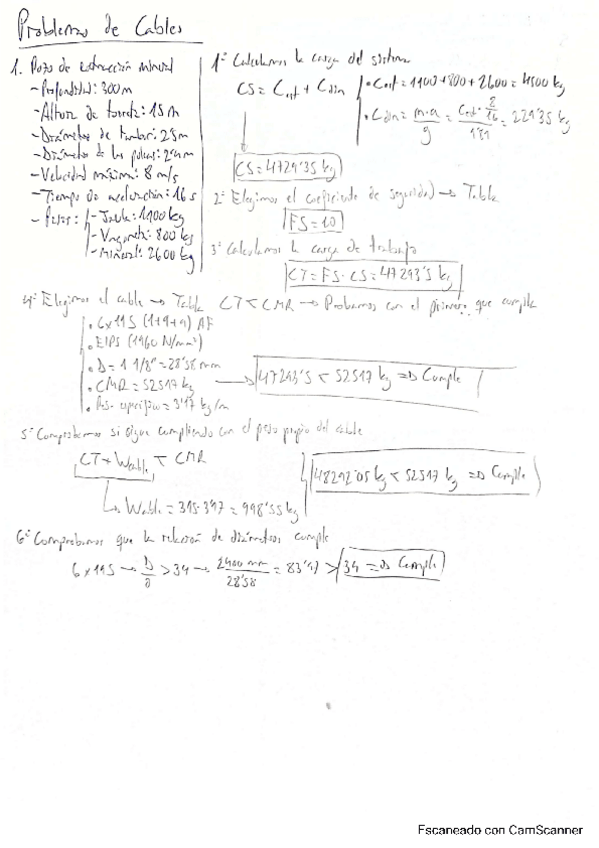 Problemas de Cables
1. Pozo de extracción mineral
- Profundidad: 300m
- Altura de torreta: 15m
- Diámetro de tambor: 25m
- Diámetro de las poleas: 2'4m
- Velocidad máxima: 8 m/s
- Tiempo de aceleración: 16 s
- Pesos: - Jaula: 1100 kg
- Vagoneta: 800 kg
- Mineral: 2600 kg
1º Calculamos la carga del sistema
CS = Cest + Cdin
• Cest = 1100 + 800 + 2600 = 4500 kg
• Cdin = m·a / g = Cest · 8/16 / 9'81 = 229'35 kg
CS = 4729'35 kg
2º Elegimos el coeficiente de seguridad → Tabla
FS = 10
3º Calculamos la carga de trabajo
CT = FS · CS = 47293'5 kg
4º Elegimos el cable → Tabla CT < CMR → Probamos con el primero que cumpla
• 6x19S (1+9+9) AF
• EIPS (1960 N/mm²)
• D = 1 1/8" = 28'58 mm
• CMR = 52517 kg
• Peso específico = 3'17 kg/m
→ 47293'5 < 52517 kg ⇒ Cumple
5º Comprobamos si sigue cumpliendo con el peso propio del cable
CT + Wcable < CMR
Wcable = 315·3'17 = 998'55 kg
48292'05 kg < 52517 kg ⇒ Cumple
6º Comprobamos que la relación de diámetros cumple
6x19S → D/d > 34 → 2400 mm / 28'58 = 83'97 > 34 ⇒ Cumple
Escaneado con CamScanner